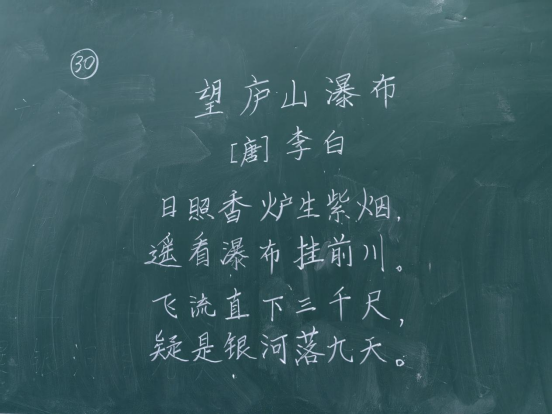 30
望庐山瀑布
[唐]李白
日照香炉生紫烟,
遥看瀑布挂前川。
飞流直下三千尺,
疑是银河落九天。